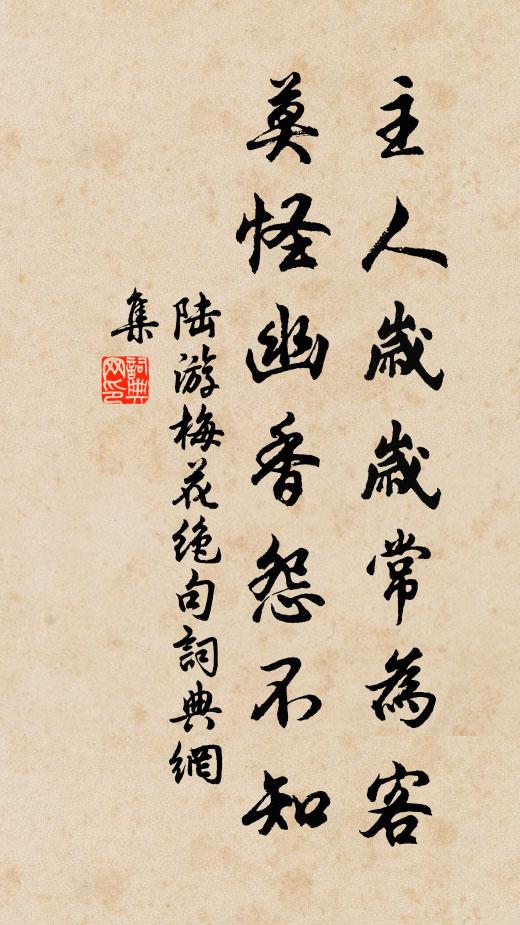 主人歲歲常為客
莫怪幽香怨不知
陆游梅花绝句詞典網
集
詞典
网印